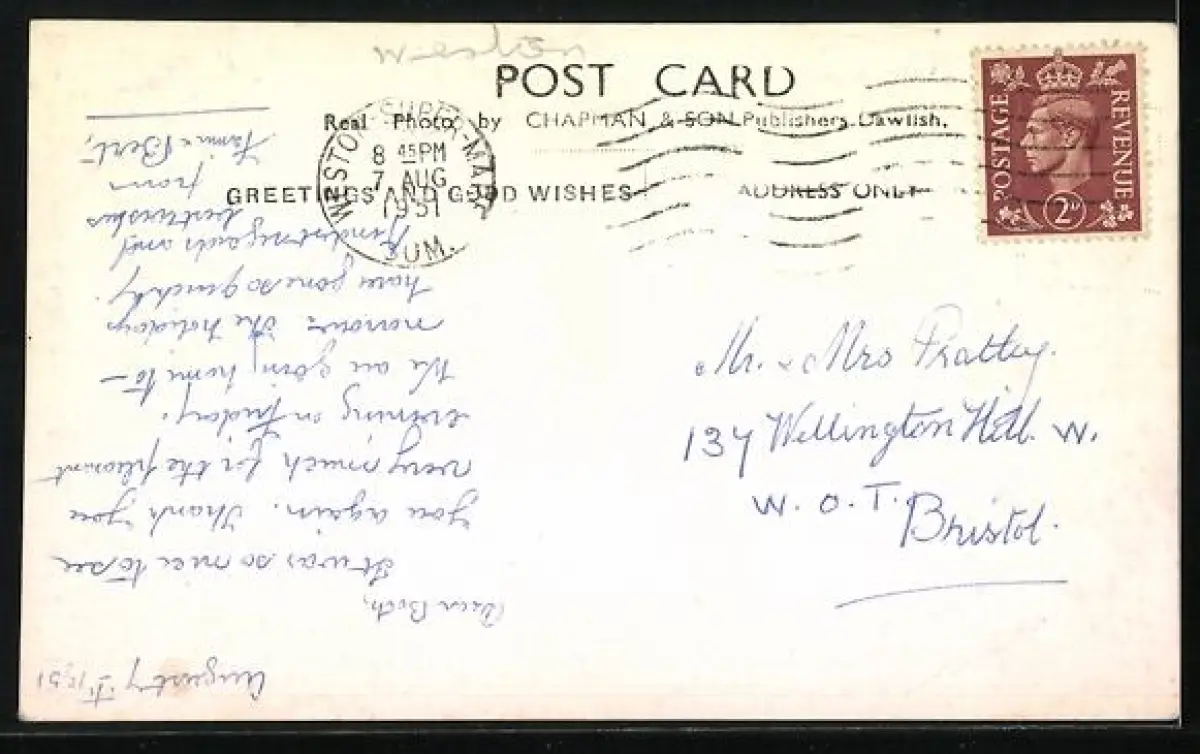 Weston
POST CARD
Real Photo by CHAPMAN & SON Publishers. Dawlish.
GREETINGS AND GOOD WISHES
ADDRESS ONLY
WESTON-SUPER-MARE
8 45 PM
7 AUG
1951
SOM.
POSTAGE
REVENUE
2D
Mr. & Mrs Prattey.
137 Wellington Hill. W.
W. O. T.
Bristol.
August 7th 1951
Dear Both,
It was so nice to see
you again. Thank you
very much for the pleasant
evening on Friday.
We are going home to-
morrow the holidays
have gone so quickly.
Kindest regards and
best wishes
from
&  Bert,